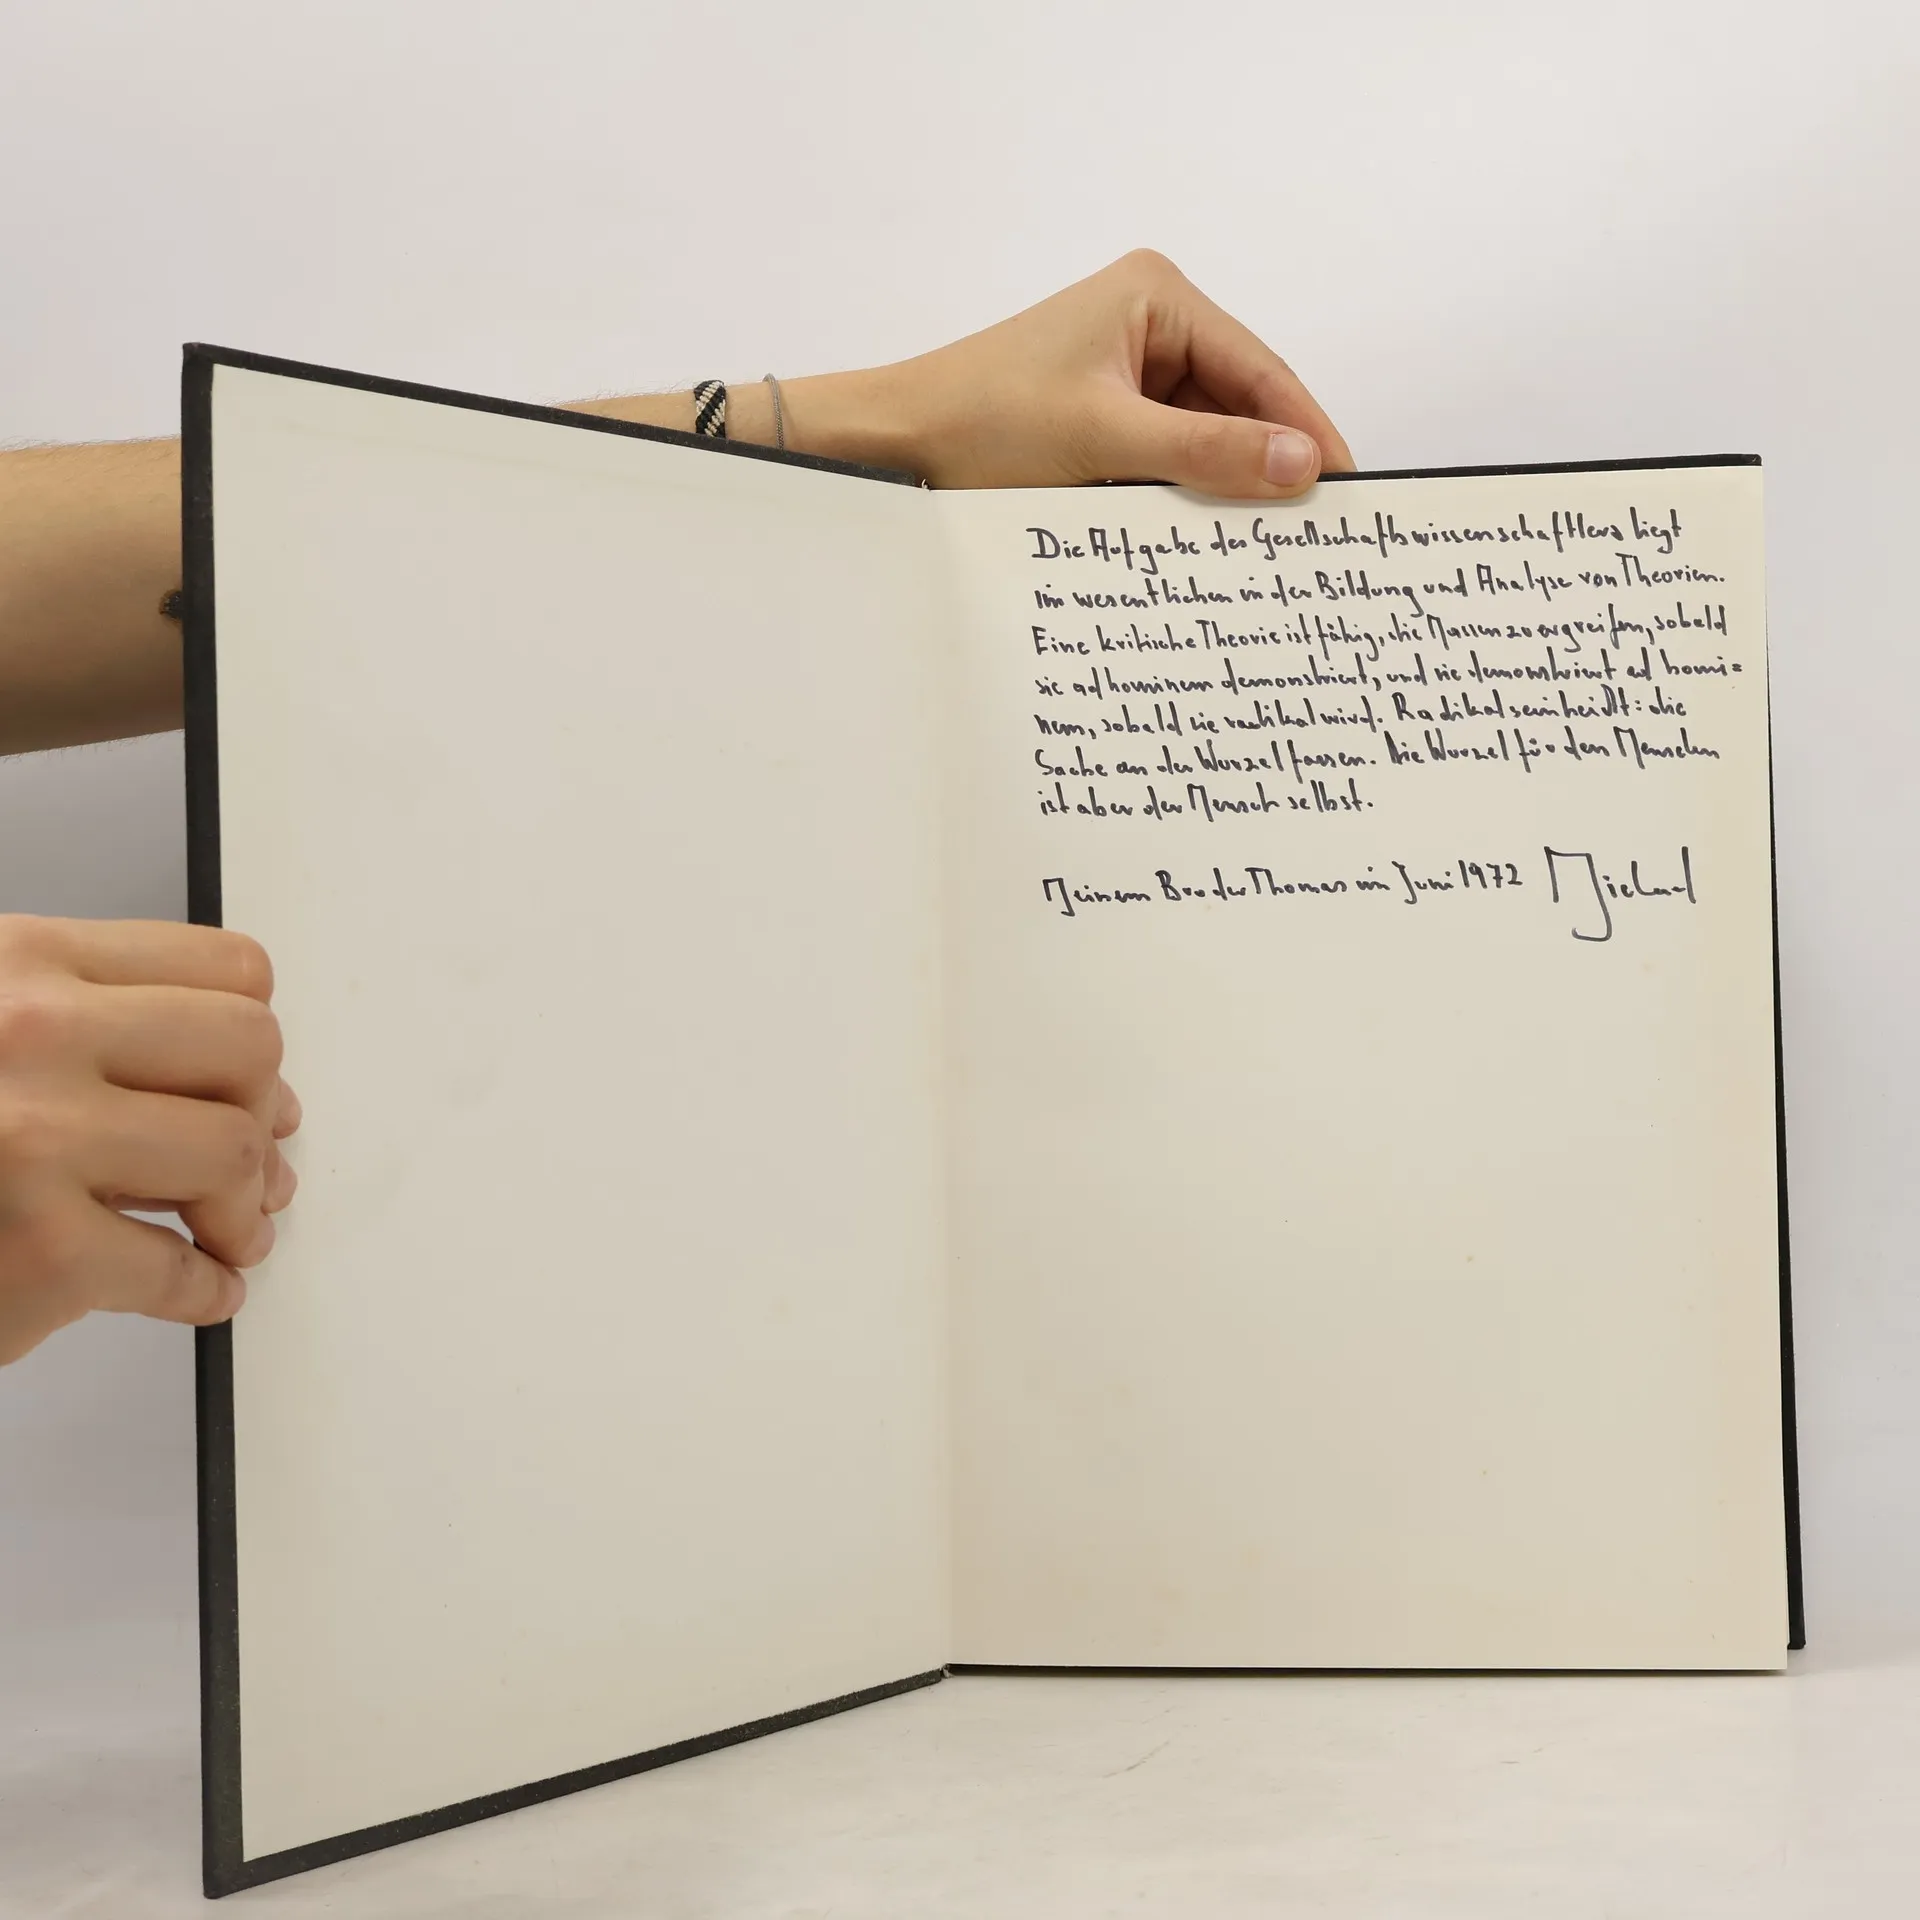 Die Aufgabe des Gesellschaftswissenschaftlers liegt
im wesentlichen in der Bildung und Analyse von Theorien.
Eine kritische Theorie ist fähig, die Massen zu ergreifen, sobald
sie ad hominem demonstriert, und sie demonstriert ad homi=
nem, sobald sie radikal wird. Radikal sein heißt: die
Sache an der Wurzel fassen. Die Wurzel für den Menschen
ist aber der Mensch selbst.
Meinem Bruder Thomas im Juni 1972 Michael